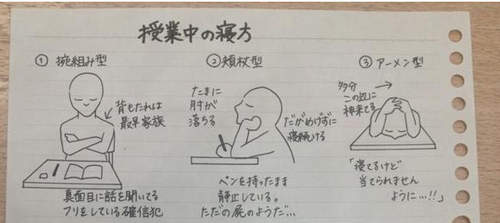 授業中の寝方
① 腕組み型
背もたれは
最早家族
真面目に話を聞いてる
フリをしている確信犯
② 頬杖型
たまに
肘が
落ちる
だがめげずに
寝続ける
ペンを持ったまま
静止している。
ただの屍のようだ…
③ アーメン型
多分
この辺に
神来てる
「寝てるけど
当てられません
ように…!!」